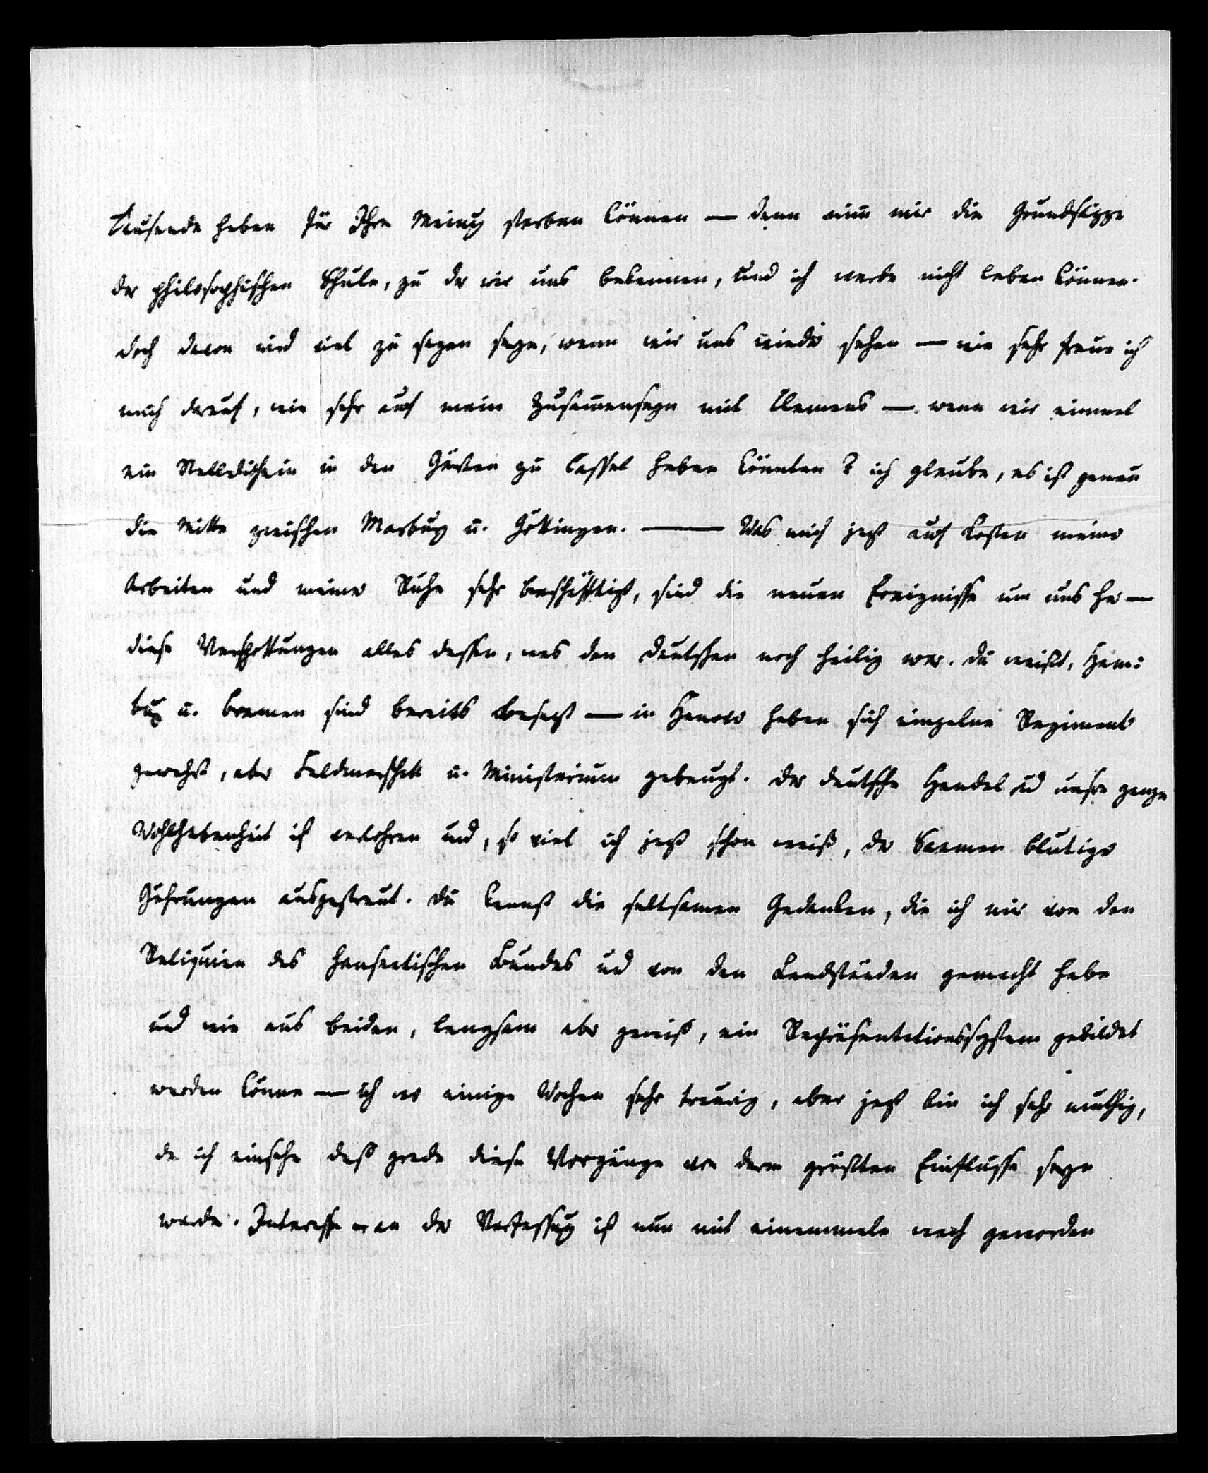 Tausende haben für Ihre Meinung sterben können — denn nimm mir die Grundsäzze
der philosophischen Schule, zu der wir uns bekennen, und ich werde nicht leben können.
doch davon wird viel zu sagen seyn, wenn wir uns wieder sehen — wie sehr freue ich
mich darauf, wie sehr auf mein Zusammenseyn mit Clemens — wenn wir einmal
ein Stelldichein in den Gärten zu Cassel haben könnten? ich glaube, es ist genau
die Mitte zwischen Marburg u. Göttingen. — Was mich jezt auf Kosten meiner
Arbeiten und meiner Ruhe sehr beschäfftigt, sind die neuen Ereignisse um uns her —
diese Verspottungen alles dessen, was den Deutschen noch heilig war. du weißt, Ham:
burg u. Bremen sind bereits besezt — in Hanover haben sich einzelne Regimenter
gewehrt, aber Feldmarschall u. Ministerium gebeugt. der deutsche Handel und unsre ganze
Wohlhabenheit ist verlohren und, so viel ich jezt schon weiß, der Saamen blutiger
Gährungen ausgestreut. du kennst die seltsamen Gedanken, die ich mir von den
Reliquien des hanseatischen Bundes und von den Landständen gemacht habe
und wie aus beiden, langsam aber gewiß, ein Repräsentationssystem gebildet
werden könne — Ich war einige Wochen sehr traurig, aber jezt bin ich sehr muthig,
da ich einsehe daß grade diese Vorgänge von dem größten Einflusse seyn
werden. Interesse an der Verfassung ist nun mit einemmale wach geworden